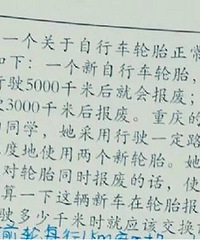 一个关于自行车轮胎正常
如下：一个新自行车轮胎，
行驶5000千米后就会报废；
驶3000千米后报废。重庆的
同学，她采用行驶一定路
度地使用两个新轮胎。她
对轮胎同时报废的话，使
算一下这辆新车在轮胎报
驶多少千米时就应该交换
前轮每行1km